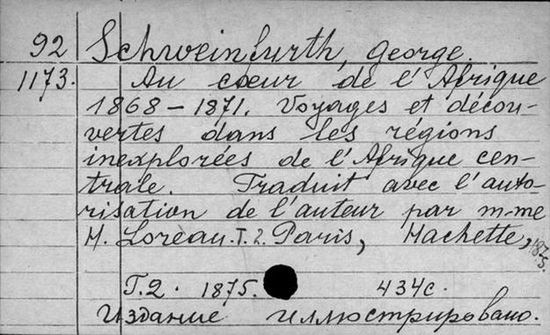 92 Schweinfurth, George
1173. Au cœur de l'Afrique
1868-1871. Voyages et décou-
vertes dans les régions
inexplorées de l'Afrique cen-
trale. Traduit avec l'auto-
risation de l'auteur par m-me
M. Loreau. T. 2. Paris, Hachette,
1875.
T.2. 1875. 434c.
Издание иллюстрировано.